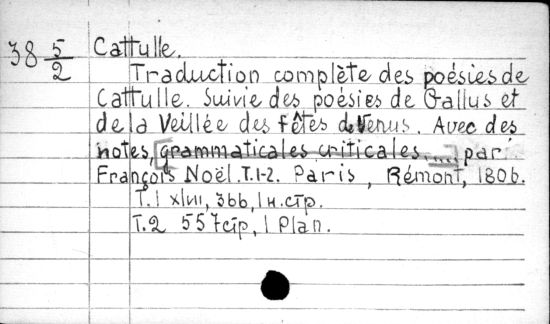 38 5/2 Cattulle.
Traduction complète des poésies de
Cattulle. Suivie des poésies de Gallus et
de la Veillée des fêtes de Venus. Avec des
notes, [grammaticales criticales, ...] par
François Noël. T.1-2. Paris, Rémont, 1806.
T.1 xlviii, 366, 1 н.стр.
T.2 557 стр, 1 Plan.